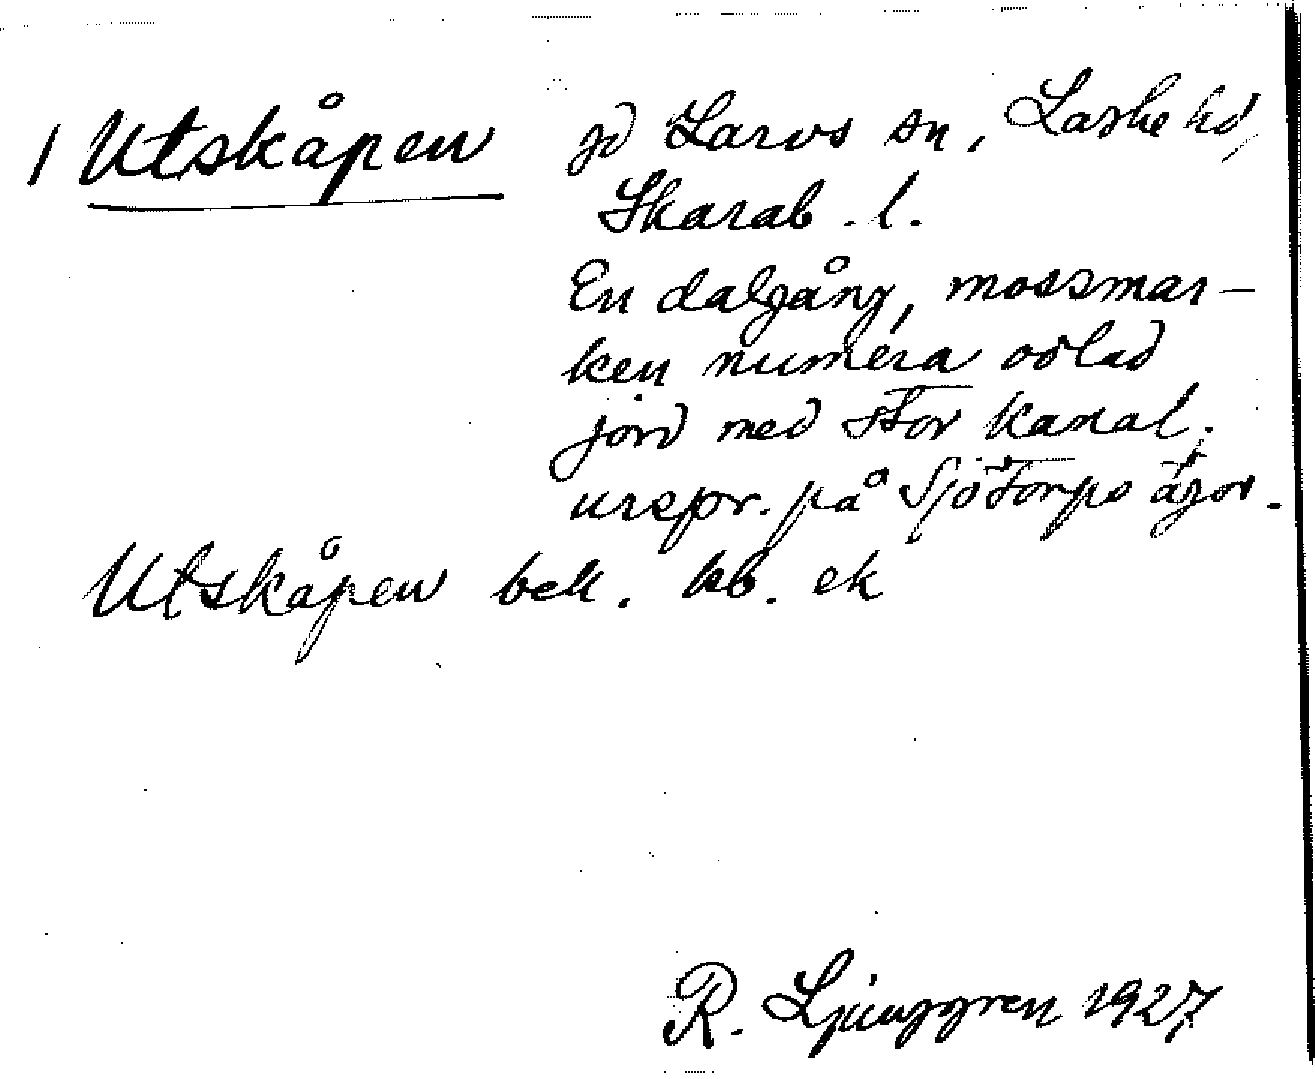 1 Utskåpen jd Larvs sn, Laske hd,
Skarab. l.
En dalgång, mossmar-
ken numera odlad
jord med stor kanal,
urspr. på Sjötorps ägor.
Utskåpen bek. kb. ek
R. Ljunggren 1927